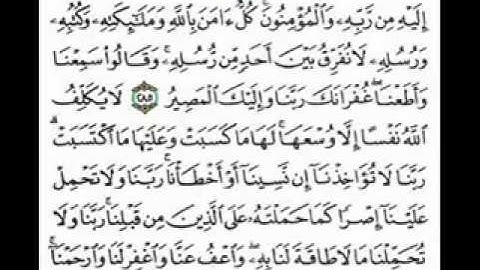 إِلَيْهِ مِن رَّبِّهِۦ وَٱلْمُؤْمِنُونَ ۚ كُلٌّ ءَامَنَ بِٱللَّهِ وَمَلَـٰٓئِكَتِهِۦ وَكُتُبِهِۦ
وَرُسُلِهِۦ لَا نُفَرِّقُ بَيْنَ أَحَدٍ مِّن رُّسُلِهِۦ ۚ وَقَالُوا۟ سَمِعْنَا
وَأَطَعْنَا ۖ غُفْرَانَكَ رَبَّنَا وَإِلَيْكَ ٱلْمَصِيرُ ٢٨٥ لَا يُكَلِّفُ
ٱللَّهُ نَفْسًا إِلَّا وُسْعَهَا ۚ لَهَا مَا كَسَبَتْ وَعَلَيْهَا مَا ٱكْتَسَبَتْ ۗ
رَبَّنَا لَا تُؤَاخِذْنَآ إِن نَّسِينَآ أَوْ أَخْطَأْنَا ۚ رَبَّنَا وَلَا تَحْمِلْ
عَلَيْنَآ إِصْرًا كَمَا حَمَلْتَهُۥ عَلَى ٱلَّذِينَ مِن قَبْلِنَا ۚ رَبَّنَا وَلَا
تُحَمِّلْنَا مَا لَا طَاقَةَ لَنَا بِهِۦ ۖ وَٱعْفُ عَنَّا وَٱغْفِرْ لَنَا وَٱرْحَمْنَآ ۚ